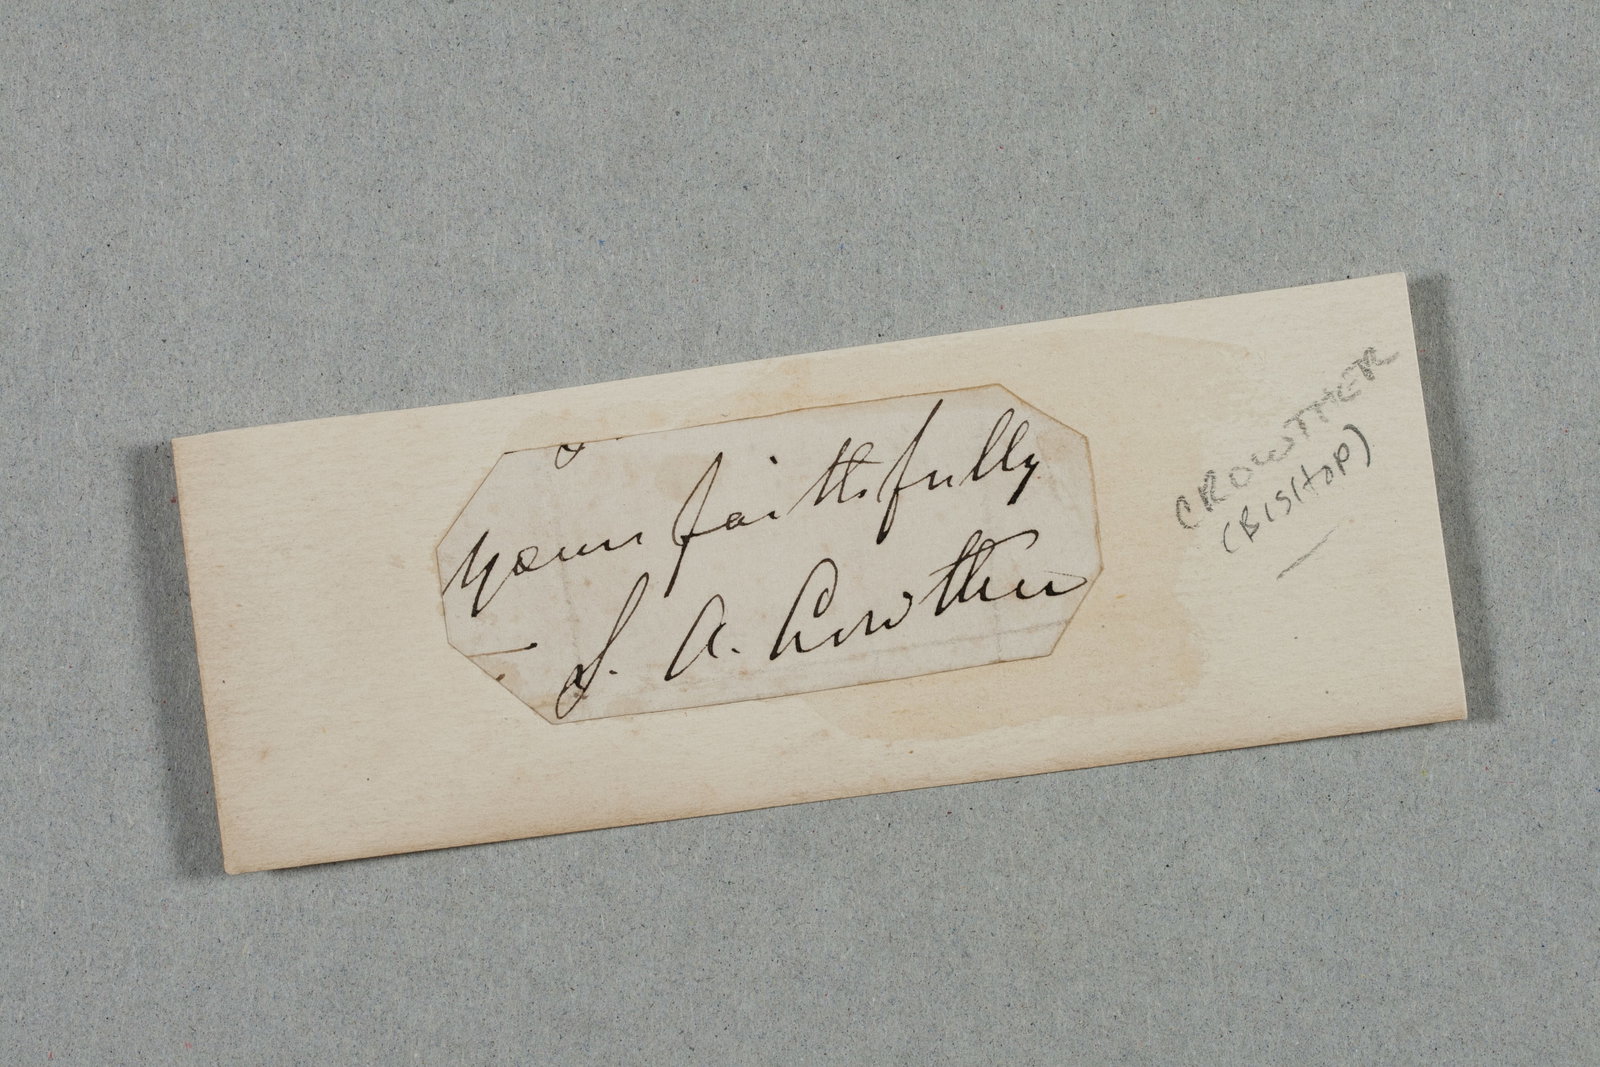 yours faithfully
S. A. Crowther
CROWTHER
(BISHOP)